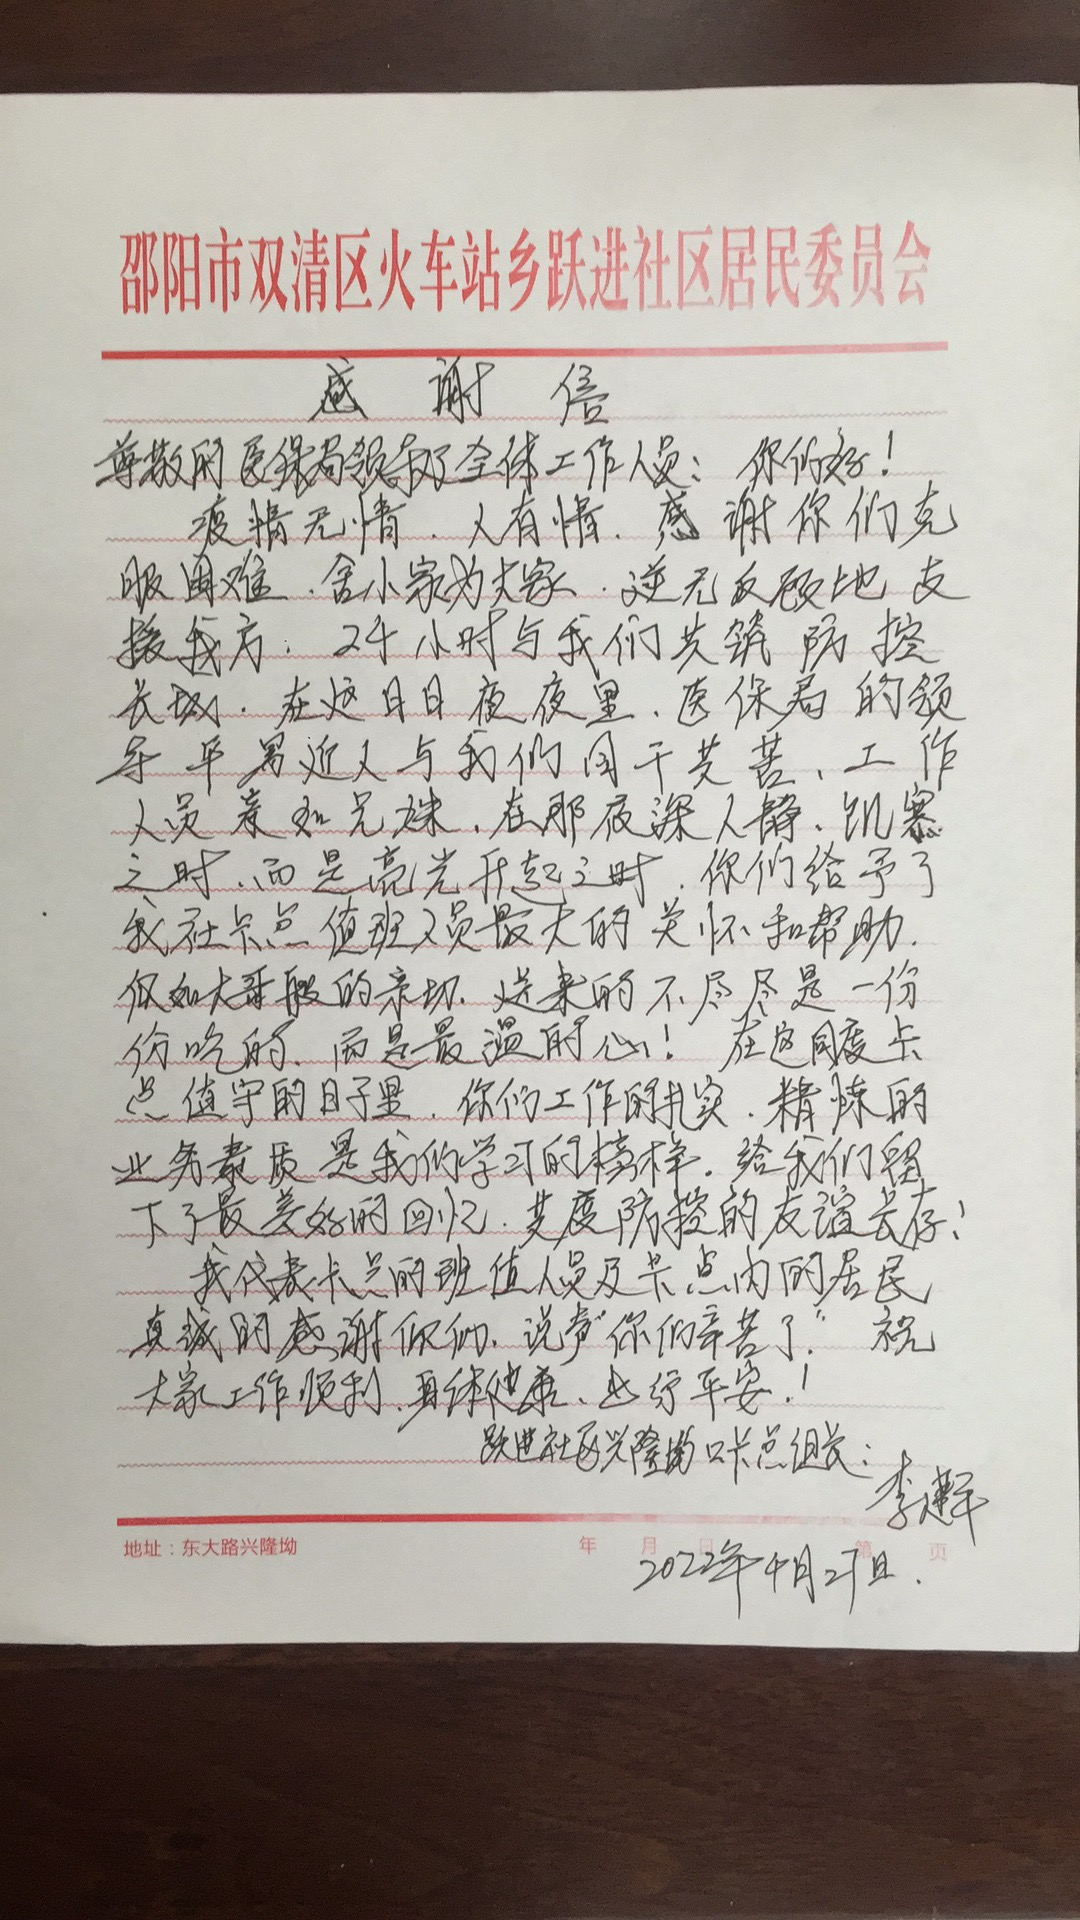 邵阳市双清区火车站乡跃进社区居民委员会
感谢信
尊敬的医保局领导及全体工作人员：你们好！
疫情无情、人有情、感谢你们克
服困难、舍小家为大家、逆无反顾地支
援我方：24小时与我们共筑防控
长城、在这日日夜夜里、医保局的领
导平易近人与我们同干共苦、工作
人员亲如兄妹、在那夜深人静、饥寒
之时、而是亮光升起之时、你们给予了
我社卡点值班人员最大的关怀和帮助、
似如大哥般的亲切、送来的不尽尽是一份
份吃的、而是最温的心！在这同度卡
点值守的日子里、你们工作的扎实、精炼的
业务素质是我们学习的榜样、给我们留
下了最美好的回忆、共度防控的友谊长存！
我代表卡点的班值人员及卡点内的居民
真诚的感谢你们、说声“你们辛苦了”祝
大家工作顺利、身体健康、出行平安！
跃进社区兴隆坳口卡点组长：
李建平
地址：东大路兴隆坳 年 月 日 第 页
2022年4月27日.